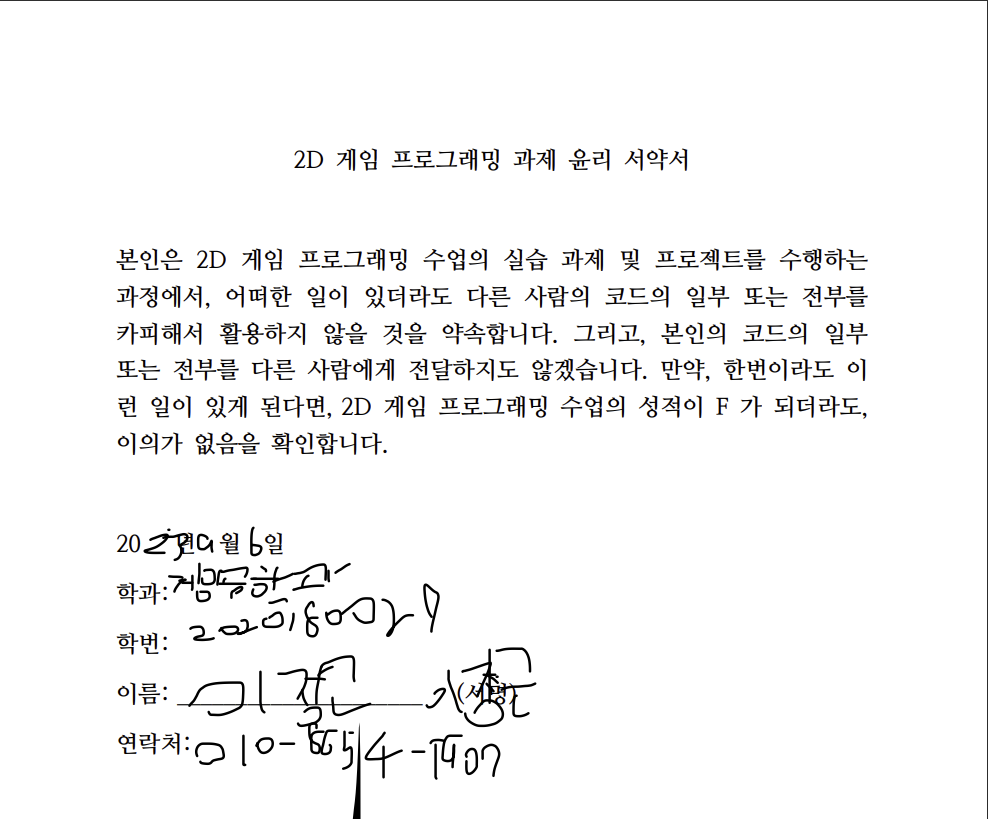 2D 게임 프로그래밍 과제 윤리 서약서
본인은 2D 게임 프로그래밍 수업의 실습 과제 및 프로젝트를 수행하는
과정에서, 어떠한 일이 있더라도 다른 사람의 코드의 일부 또는 전부를
카피해서 활용하지 않을 것을 약속합니다. 그리고, 본인의 코드의 일부
또는 전부를 다른 사람에게 전달하지도 않겠습니다. 만약, 한번이라도 이
런 일이 있게 된다면, 2D 게임 프로그래밍 수업의 성적이 F 가 되더라도,
이의가 없음을 확인합니다.
2023년 9월 6일
학과: 게임공학과
학번:
이름: (서명)
연락처: